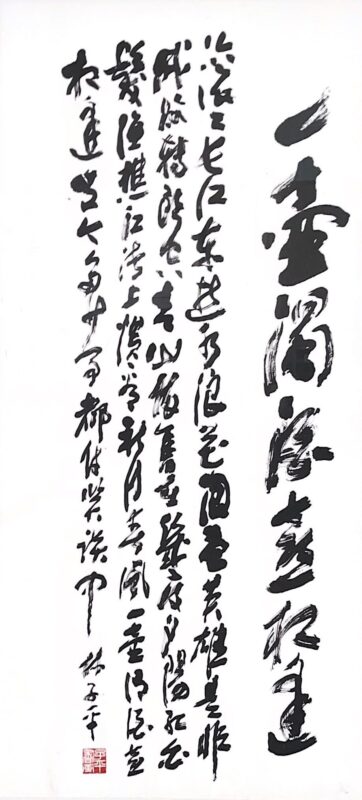 一壺濁酒喜相逢
滚滚长江东逝水浪花淘尽英雄是非
成败轉頭空青山依舊在幾度夕陽红白
髮渔樵江渚上惯看秋月春風一壺濁酒喜
相逢古今多少事都付笑談中 子平